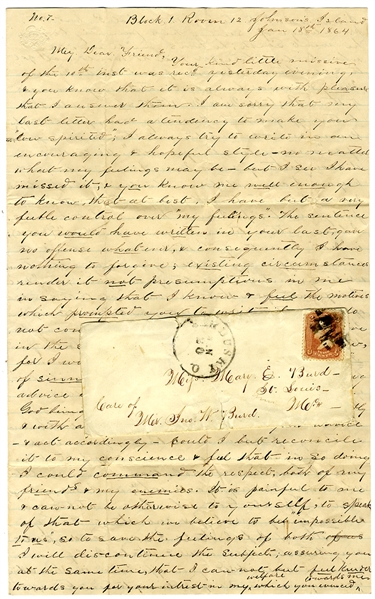 No. 7.
Block 1 Room 12 Johnson's Island
Jan 18th 1864
My Dear Friend,
Your kind little missive
of the 10th inst was recd yesterday evening
& you know that it is always with pleasure
that I answer them. I am sorry that my
last letter had a tendency to make you
"low spirited"; I always try to write in an
encouraging & hopeful style - no matter
what my feelings may be - but I see I have
missed it, & you know me well enough
to know that at best, I have but a very
feeble control over "my feelings". The sentence
you would have written in your last, gave
no offense whatever, & consequently I have
nothing to forgive; existing circumstances
render it not presumptious in me
in saying that I know & feel the motives
which prompted you to
not con
in the
for I w
of sin
advice
God
& worth
& act accordingly - Could I but reconcile
it to my conscience & feel that in so doing
I could command the respect, both of my
friends & my enemies. It is painful to me
& can not be otherwise to yourself, to speak
of that which we believe to be impossible
to us, so to save the feelings of both of us
I will discontinue the subject, assuring you
at the same time, that I can not but feel kinder
towards you for your interest in my welfare, which you
towards me
SANDUSKY O.
Miss Mary E. Burd
St. Louis
Mo
Care of
Mr. Jno. W. Burd.